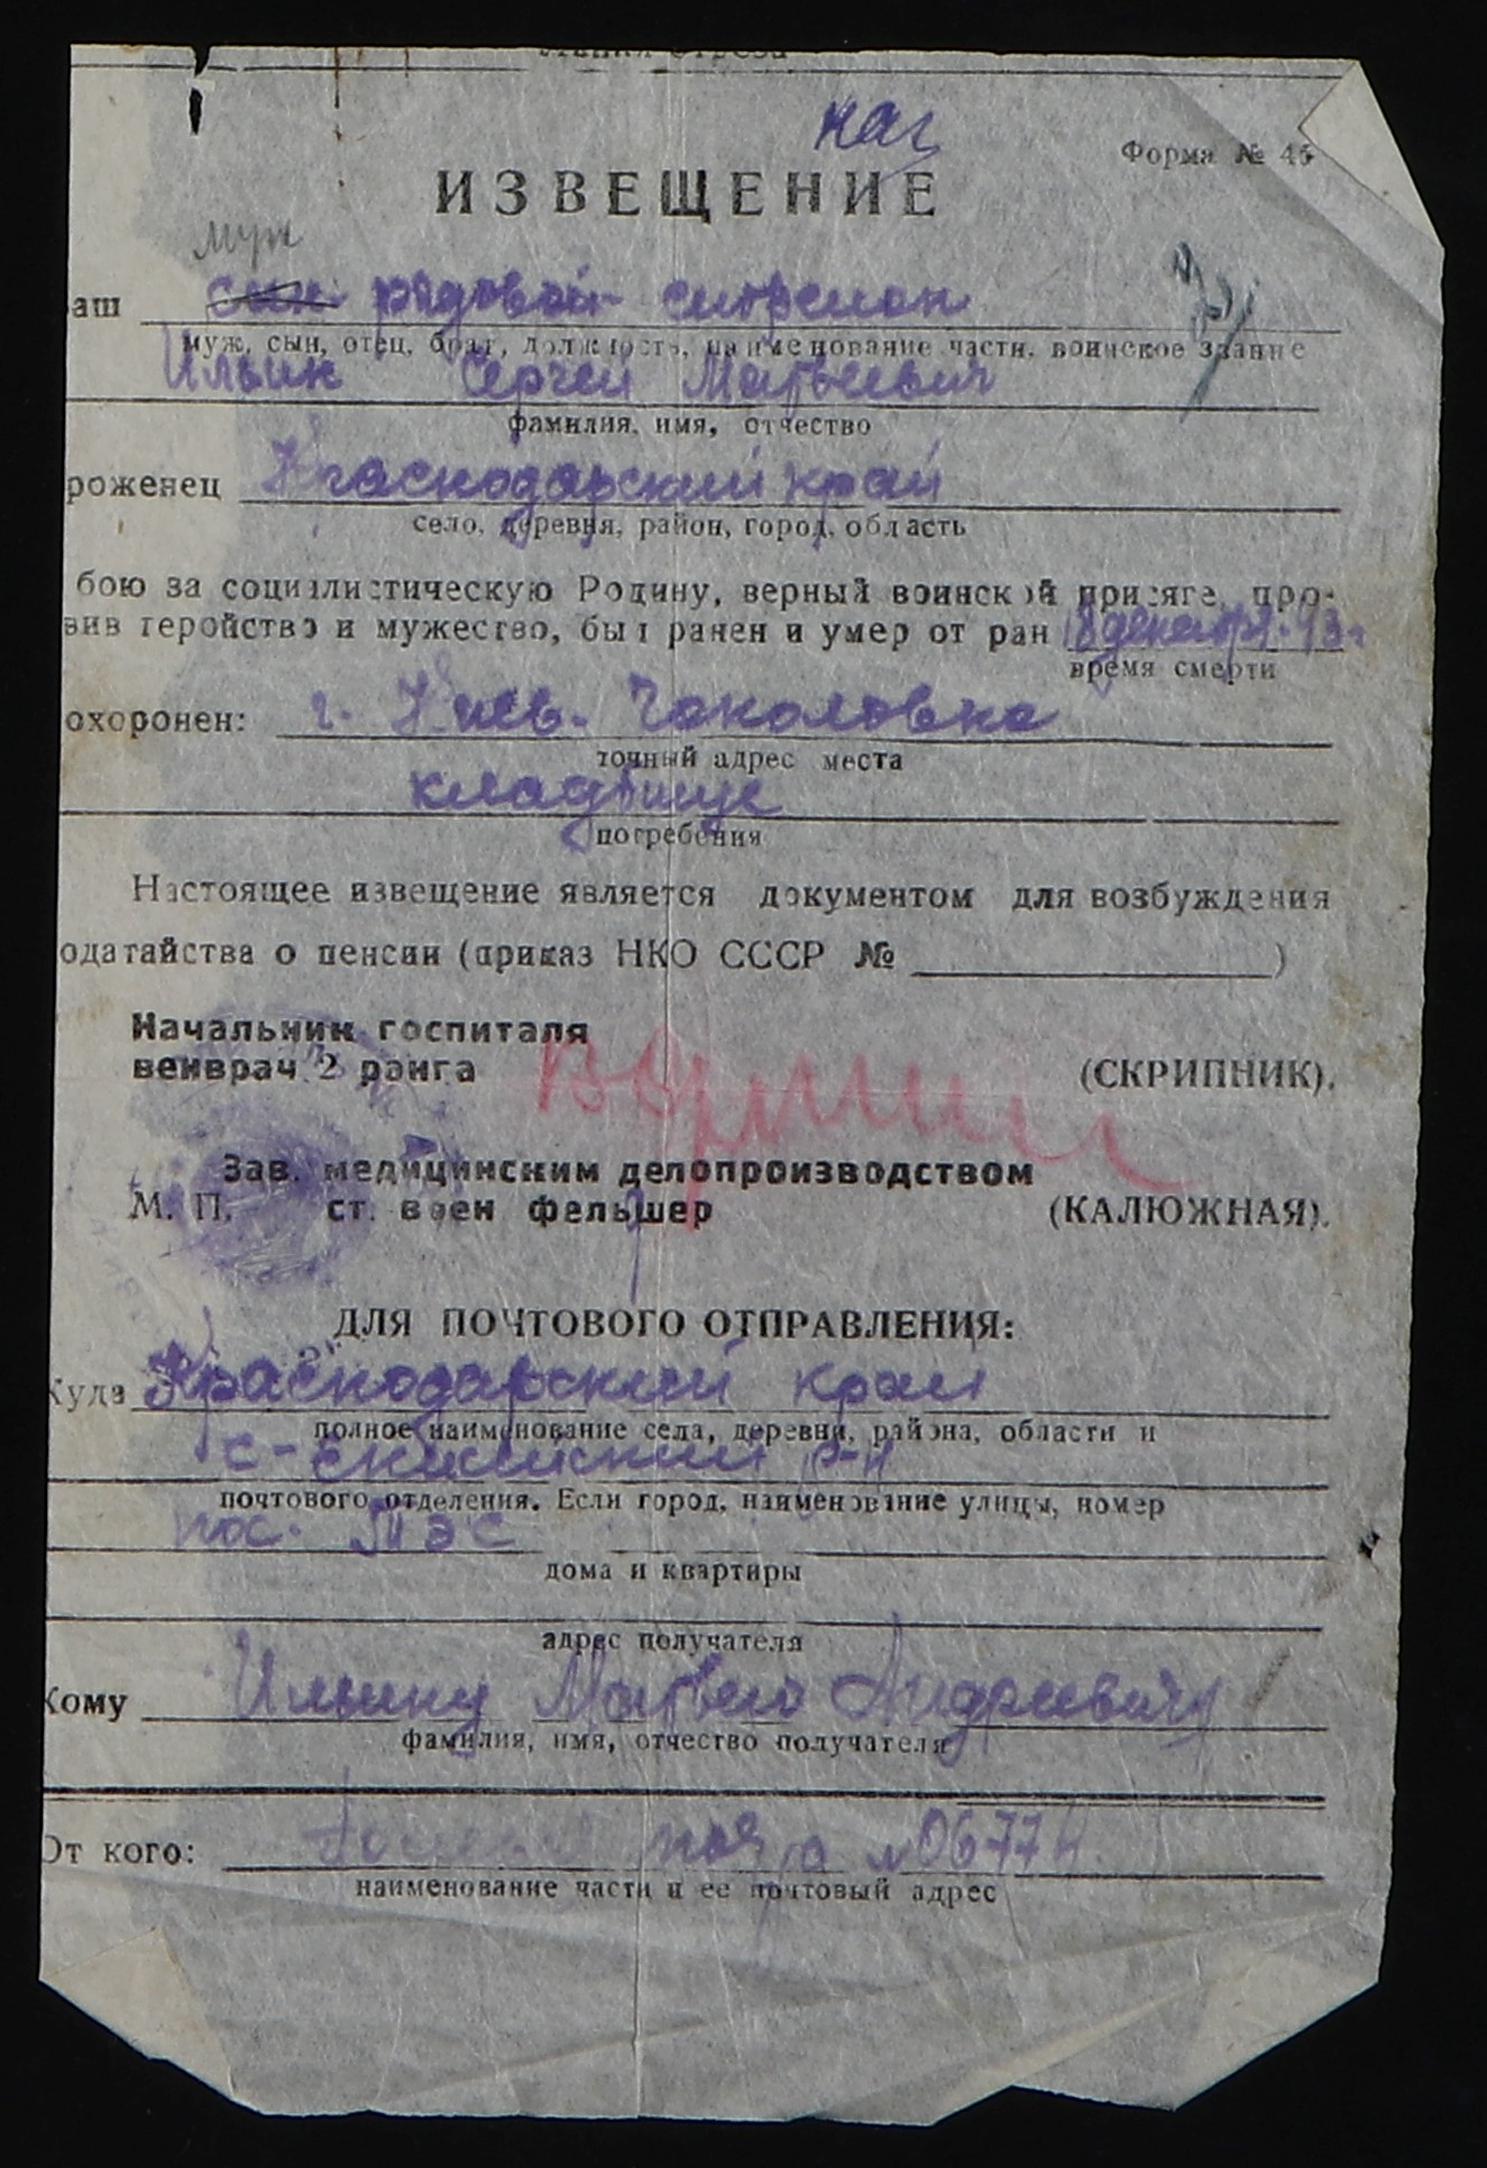 Форма № 46
ИЗВЕЩЕНИЕ
муж
аш сын рядовой
муж, сын, отец, брат, должность, наименование части, воинское звание
Ильин Сергей Матвеевич
фамилия, имя, отчество
роженец Краснодарский край
село, деревня, район, город, область
бою за социалистическую Родину, верный воинской присяге, про-
вив геройство и мужество, был ранен и умер от ран 18 декабря 43 г
время смерти
охоронен: г. Киев. Чоколовка
точный адрес места
кладбище
погребения
Настоящее извещение является документом для возбуждения
одатайства о пенсии (приказ НКО СССР № )
Начальник госпиталя
военврач 2 ранга (СКРИПНИК).
Зав. медицинским делопроизводством
М. П. ст. воен фельшер (КАЛЮЖНАЯ).
ДЛЯ ПОЧТОВОГО ОТПРАВЛЕНИЯ:
Куда Краснодарский край
полное наименование села, деревни, района, области и
р-н
почтового отделения. Если город, наименование улицы, номер
пос.
дома и квартиры
адрес получателя
Кому Ильину Матвею Андреевичу
фамилия, имя, отчество получателя
От кого: почта № 06774
наименование части и ее почтовый адрес